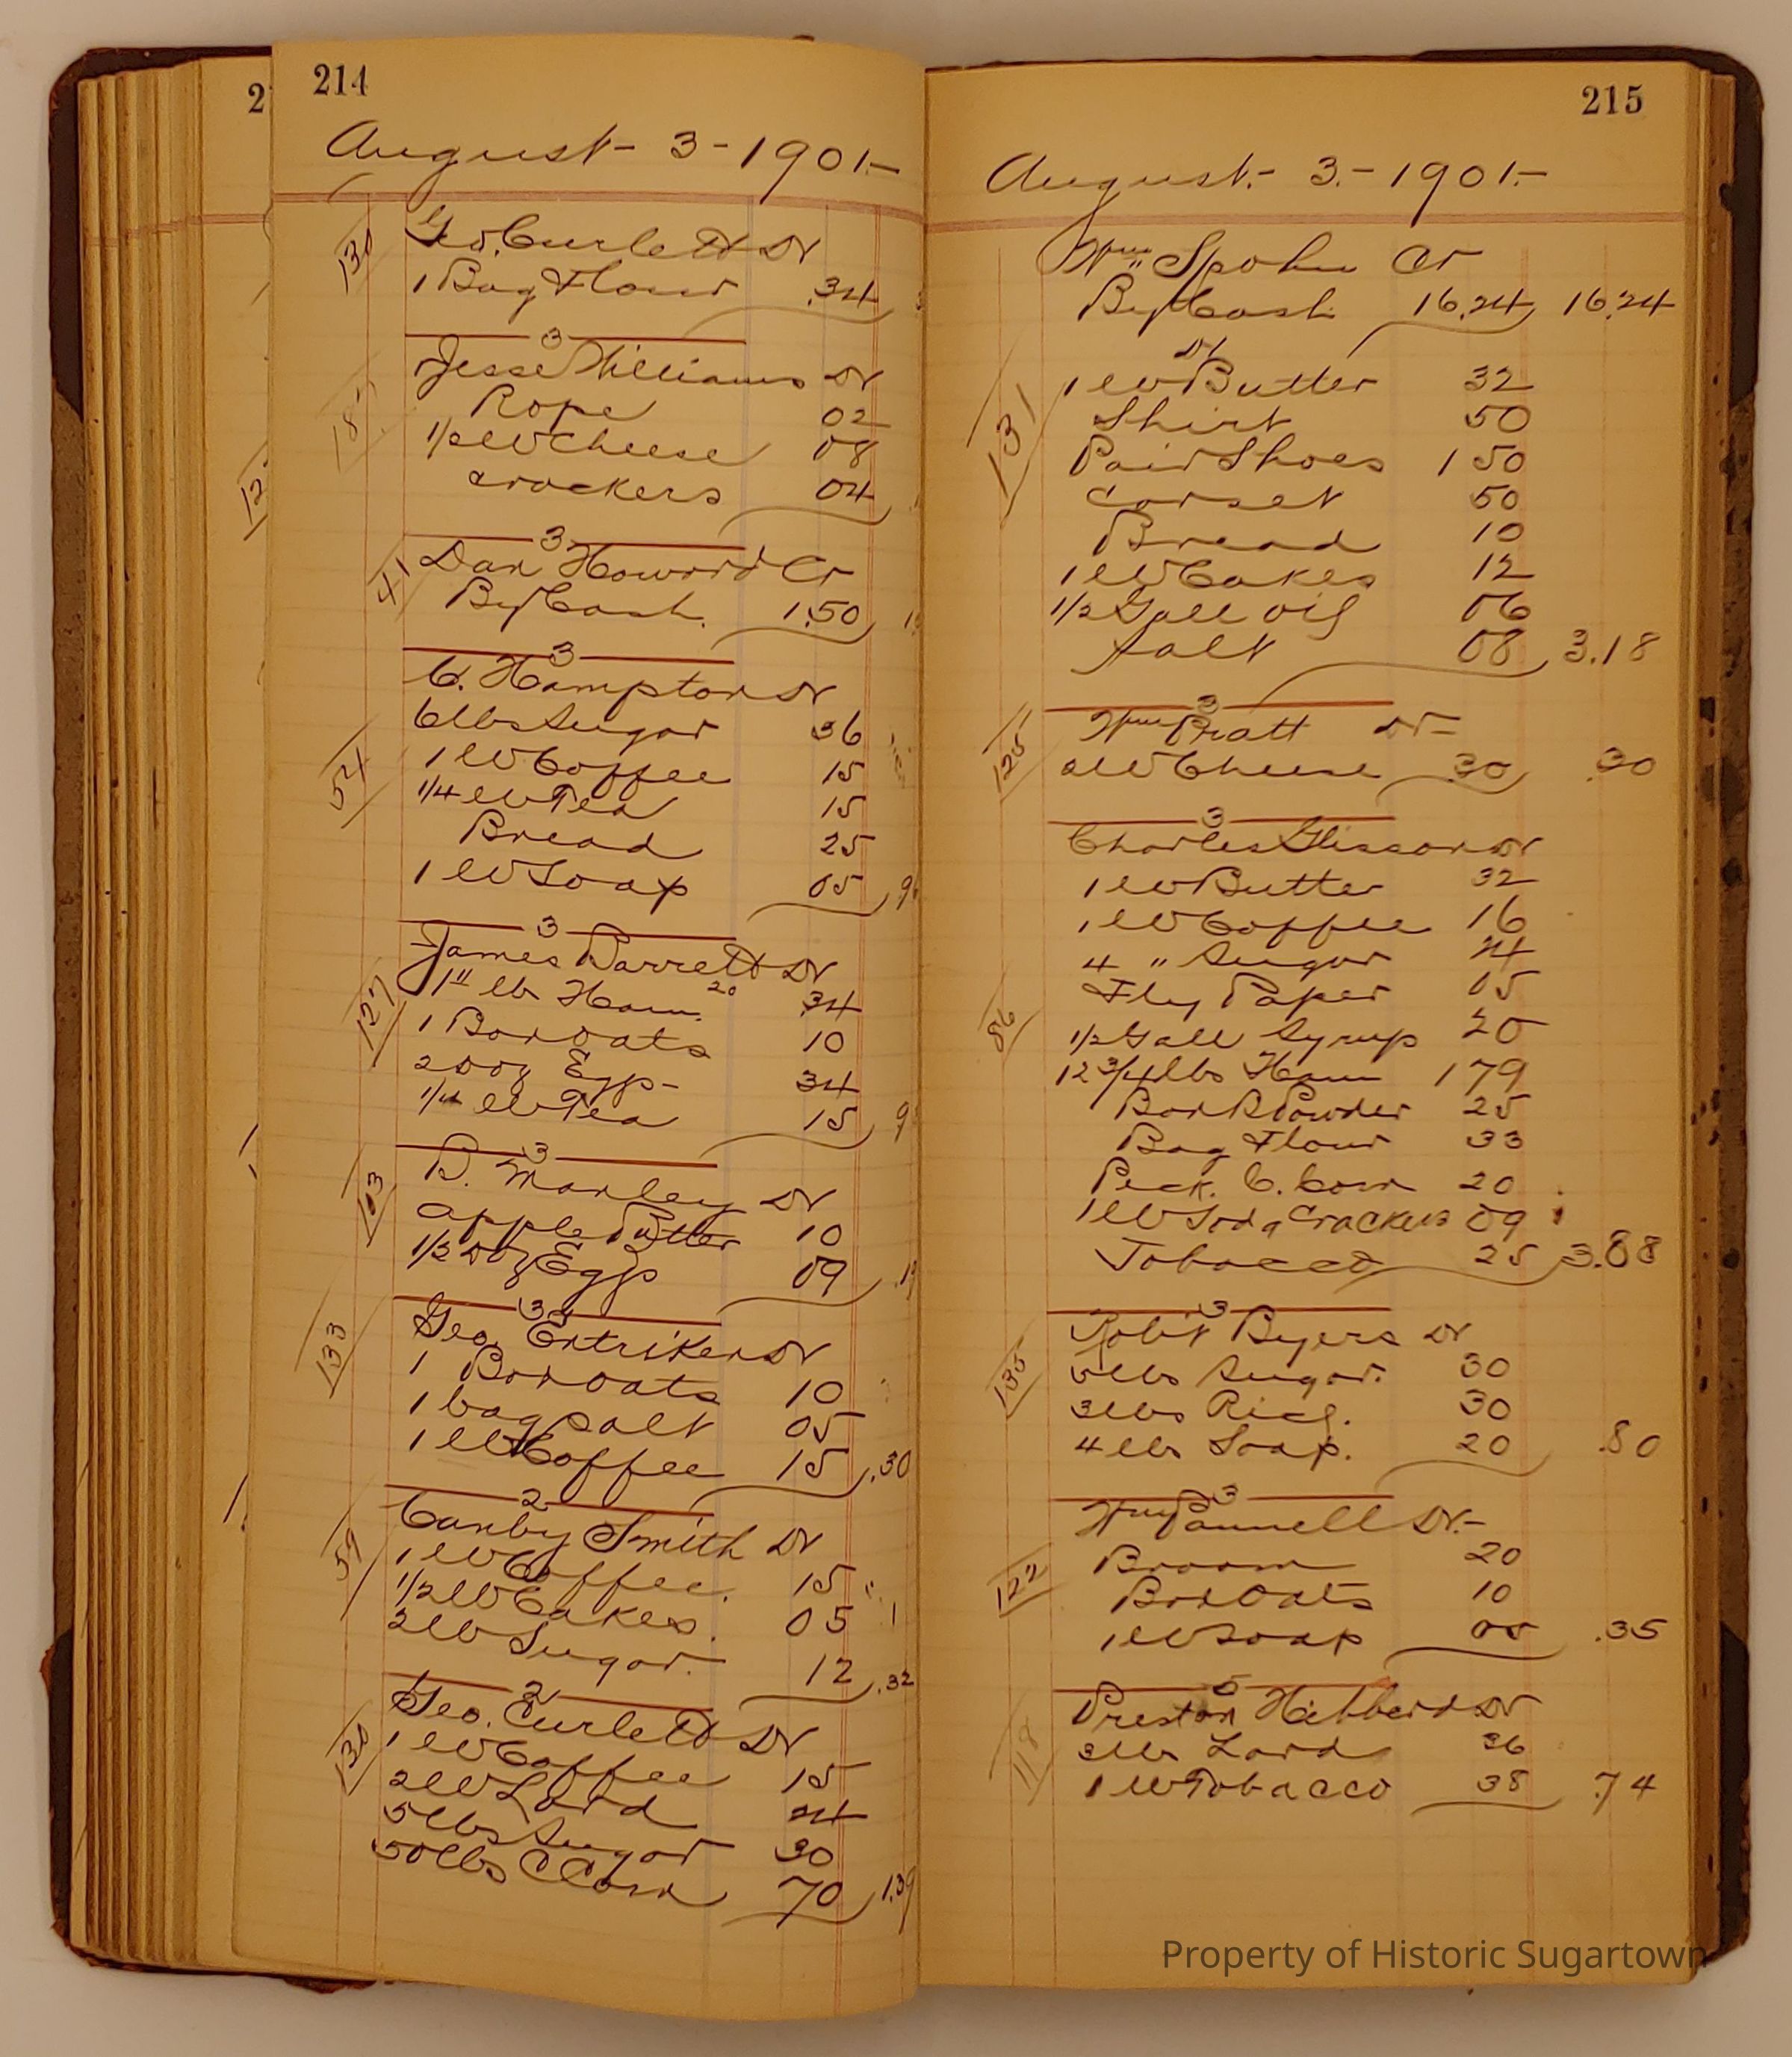 2
12
214
August - 3 - 1901.-
130
Geo. Curlett Dr
1 Bag Flour .34
3
187
Jesse Williams Dr
Rope 02
1/2 lb Cheese 08
crackers 04
3
41
Dan Howard Cr
By Cash. 1.50
3
C. Hampton Dr
6 lbs Sugar 36
54
1 lb Coffee 15
1/4 lb Tea 15
Bread 25
1 lb Soap 05
3
127
James Darrett Dr
1 11 lb Ham. 20 34
1 Box oats 10
2 doz Eggs - 34
1/4 lb Tea 15
3
103
B. Manley Dr
apple Butter 10
1/2 doz Eggs 09
3
133
Geo. Entriken Dr
1 Box oats 10
1 bag salt 05
1 lb Coffee 15 .30
2
59
Canby Smith Dr
1 lb Coffee. 15
1/2 lb Cakes. 05
2 lb Sugar. 12 .32
2
130
Geo. Curlett Dr
1 lb Coffee 15
2 lb Lard 24
5 lbs Sugar 30
50 lbs C Corn 70 1.39
215
August.- 3.- 1901.-
Wm Spohn Cr
By Cash 16.24 16.24
Dr
131
1 lb Butter 32
Shirt 50
Pair Shoes 1 50
Corset 50
Bread 10
1 lb Cakes 12
1/2 Gall oil 06
Salt 08 3.18
3
125
Wm Pratt Dr -
2 lb Cheese 30 .30
3
Charles Glisson Dr
1 lb Butter 32
1 lb Coffee 16
4 " Sugar 24
Fly Paper 05
86
1/2 Gall Syrup 20
12 3/4 lbs Ham 1 79
Box B Powder 25
Bag Flour 33
Peck. C. Corn 20
1 lb Soda Crackers 09
Tobacco 25 3.88
3
135
Robt Byers Dr
5 lbs Sugar. 30
3 lbs Rice. 30
4 lbs Soap. 20 .80
3
122
Wm Pannell Dr.-
Broom 20
Box Oats 10
1 lb Soap 05 .35
5
118
Preston Hibberd Dr
3 lbs Lard 36
1 lb Tobacco 38 .74
Property of Historic Sugartown